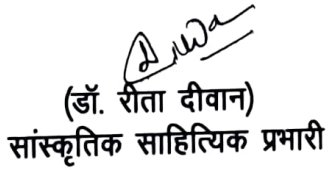 (डॉ. रीता दीवान)
सांस्कृतिक साहित्यिक प्रभारी